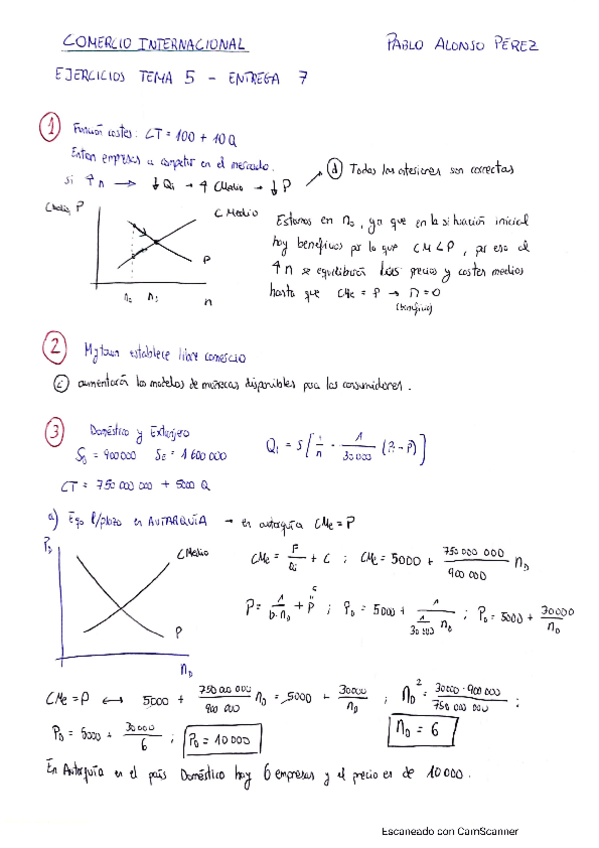 COMERCIO INTERNACIONAL PABLO ALONSO PÉREZ
EJERCICIOS TEMA 5 - ENTREGA 7
1 Función costes: CT = 100 + 10Q
Entran empresas a competir en el mercado.
Si ↑n → ↓Qi → ↑CMedio → ↓P
d Todas las anteriores son correctas
CMedio, P
CMedio
P
n₀ n₁ n
Estamos en n₀, ya que en la situación inicial
hay beneficios por lo que CM < P, por eso al
↑n se equilibrarán los precios y costes medios
hasta que CMe = P → Π = 0
(beneficio)
2 Mytown establece libre comercio
c aumentarán los modelos de muñecas disponibles para los consumidores.
3 Doméstico y Extranjero
S_D = 900000 S_E = 1600000
Qi = S[1/n - 1/30000 (Pi - P̄)]
CT = 750 000 000 + 5000 Q
a) Eqo l/plazo en AUTARQUÍA → en autarquía CMe = P
P_D
CMedio
P
n_D
CMe = F/Qi + C ; CMe = 5000 + 750 000 000/900 000 n_D
P = 1/b·n_D + C ; P_D = 5000 + 1/(1/30000 n_D) ; P_D = 5000 + 30000/n_D
CMe = P ↔ 5000 + 750 000 000/900 000 n_D = 5000 + 30000/n_D ; n_D² = 30000·900 000/750 000 000 ;
P_D = 5000 + 30000/6 ; P_D = 10000 n_D = 6
En Autarquía en el país Doméstico hay 6 empresas y el precio es de 10000.
Escaneado con CamScanner